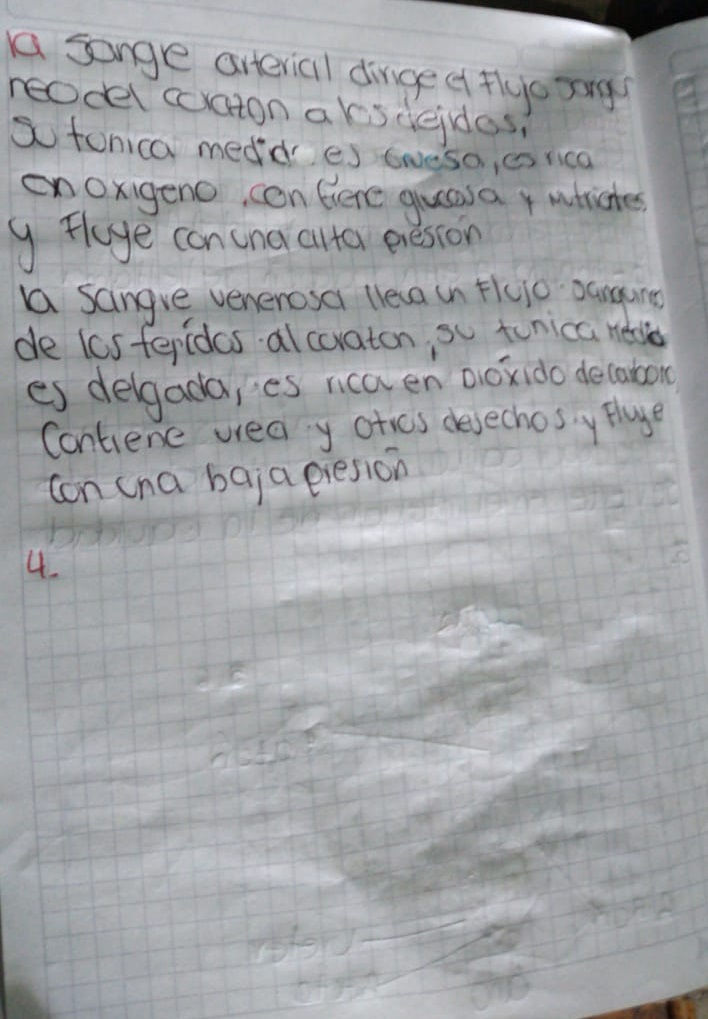 la sangre arterial dirige el flujo sangui
neo del corazon a los tejidos,
su tunica media es gruesa, es rica
en oxigeno, contiene glucosa y nutrientes
y fluye con una alta presion
la sangre venenosa lleva un flujo sanguineo
de los tejidos al corazon, su tunica media
es delgada, es rica en Dioxido de carbono
Contiene urea y otros desechos y fluye
con una baja presión
4.